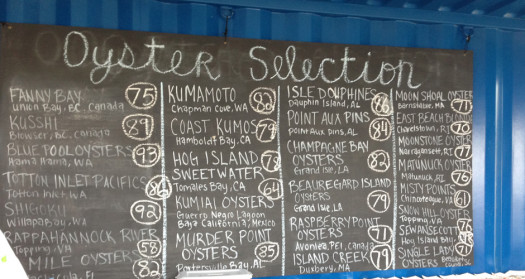 Oyster Selection
FANNY BAY 75
Union Bay, BC, Canada
KUSSHI 89
BC, Canada
BLUE POOL OYSTERS 93
Hama Hama, WA
TOTTEN INLET PACIFICS 86
Totten Inlet, WA
SHIGOKU 92
Willipa Bay, WA
RAPPAHANNOCK RIVER 58
Topping, VA
MILE OYSTERS 82
FL
KUMAMOTO
Chapman Cove, WA
COAST KUMOS 79
Humboldt Bay, CA
HOG ISLAND 78
SWEETWATER
Tomales Bay, CA 64
KUMIAI OYSTERS
Guerro Negro Lagoon
Baja California, Mexico
MURDER POINT
OYSTERS 85
AL
ISLE DAUPHINES
Dauphin Island, AL
POINT AUX PINS
Point Aux Pins, AL 84
CHAMPAGNE BAY
OYSTERS 82
Grand Isle, LA
BEAUREGARD ISLAND
OYSTERS 79
Grand Isle, LA
RASPBERRY POINT
OYSTERS 71
PEI, Canada
ISLAND CREEK 79
Duxbury, MA
MOON SHOAL OYSTER
Barnstable, MA 71
EAST BEACH BLONDE
Charlestown, RI 70
MOONSTONE OYSTER
Narragansett, RI
MATUNUCK OYSTER
Matunuck, RI 76
MISTY POINTS
Chincoteague, VA 61
SNOW HILL OYSTER
SEWANSECOTT
Hog Island Bay
SINGLE LADY
OYSTERS 71